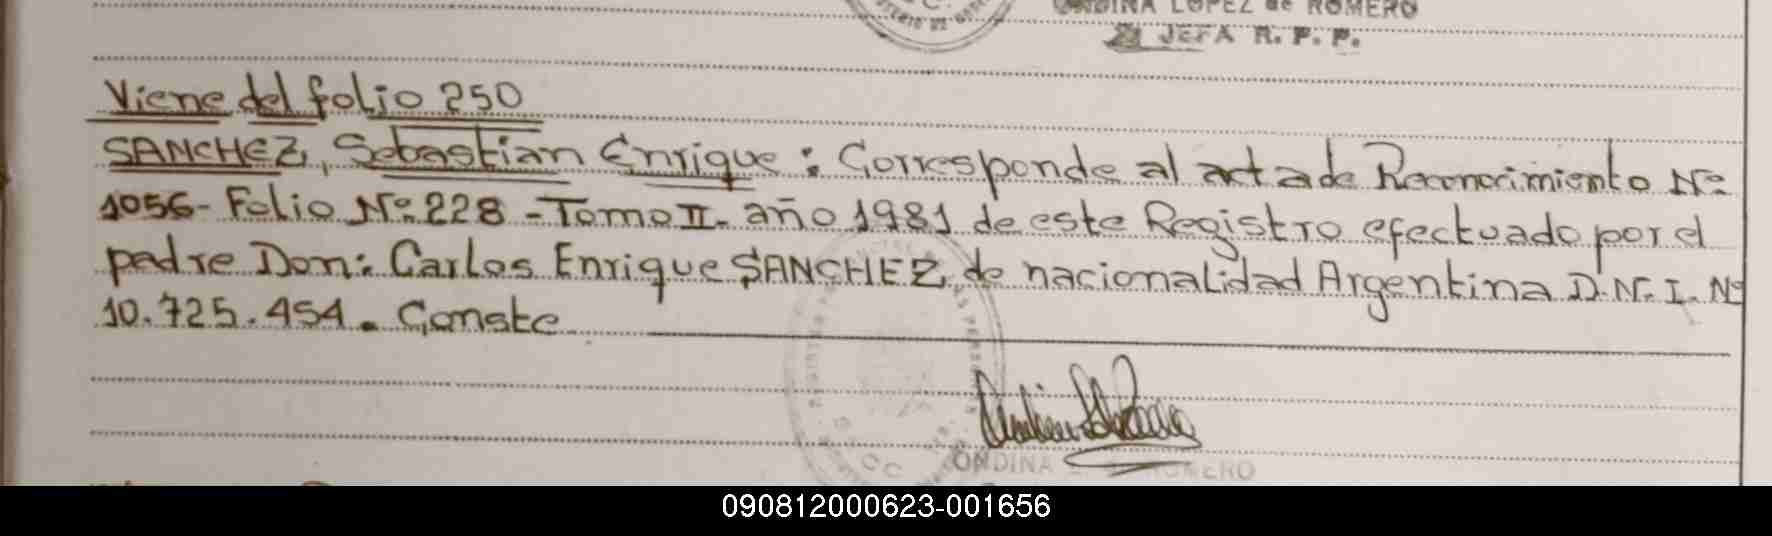 ONDINA LOPEZ de ROMERO
JEFA R. P. P.
Viene del folio 250
SANCHEZ, Sebastian Enrique: Corresponde al acta de Reconocimiento Nº
1056- Folio Nº 228 - Tomo II- año 1981 de este Registro efectuado por el
padre Don: Carlos Enrique SANCHEZ, de nacionalidad Argentina D.N.I. Nº
10.725.454. Conste
ONDINA ROMERO
090812000623-001656